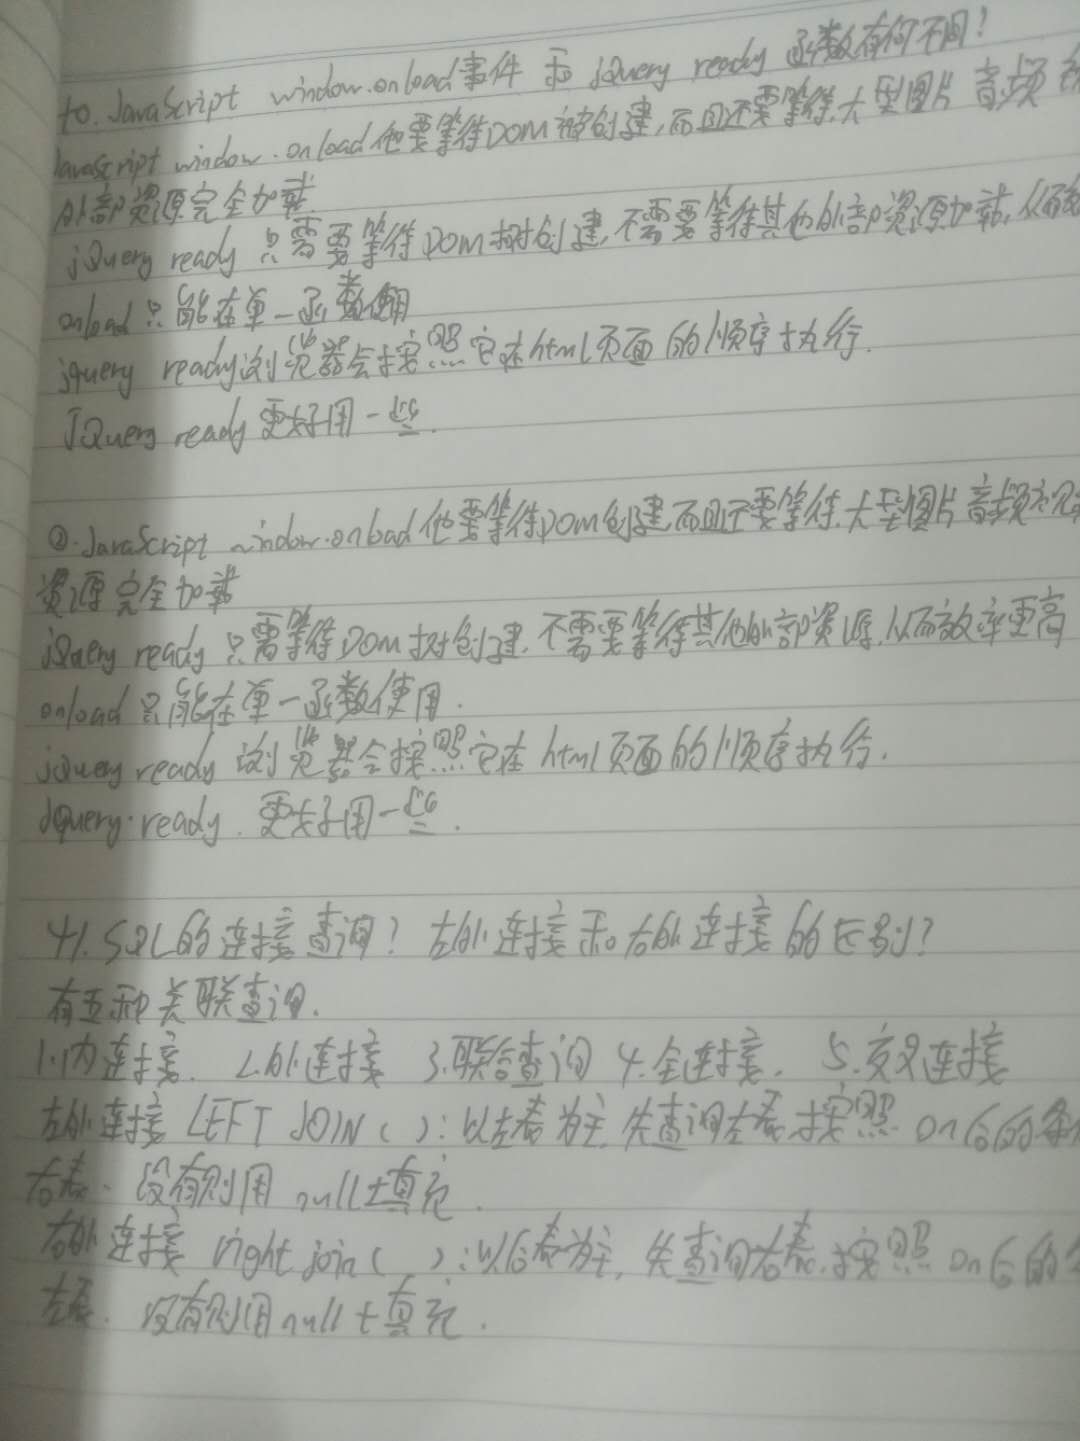 40. JavaScript window.onload事件 和 jQuery ready 函数有何不同?
JavaScript window.onload 他要等待DOM被创建,而且还要等待.大型图片 音频
外部资源完全加载
jQuery ready 只需要等待DOM树创建,不需要等待其他外部资源加载,从而
onload 只能在单一函数使用
jquery ready浏览器会按照它在html页面的顺序执行.
JQuery ready 更好用一些.
②.JavaScript window.onload他要等待DOM创建,而且还要等待.大型图片 音频
资源完全加载
jQuery ready 只需等待DOM树创建,不需要等待其他外部资源,从而效率更高
onload 只能在单一函数使用.
jQuery ready 浏览器会按照它在html页面的顺序执行.
JQuery·ready. 更好用一些.
41.SQL的连接查询? 左外连接和右外连接的区别?
有五种关联查询.
1.内连接. 2.外连接 3.联合查询 4.全连接. 5.交叉连接
左外连接 LEFT JOIN ( ):以左表为主,先查询左表,按照 on后的条
右表.没有则用 null填充.
右外连接 right join ( ):以右表为主,先查询右表.按照 on后的
左表.没有则用null填充.